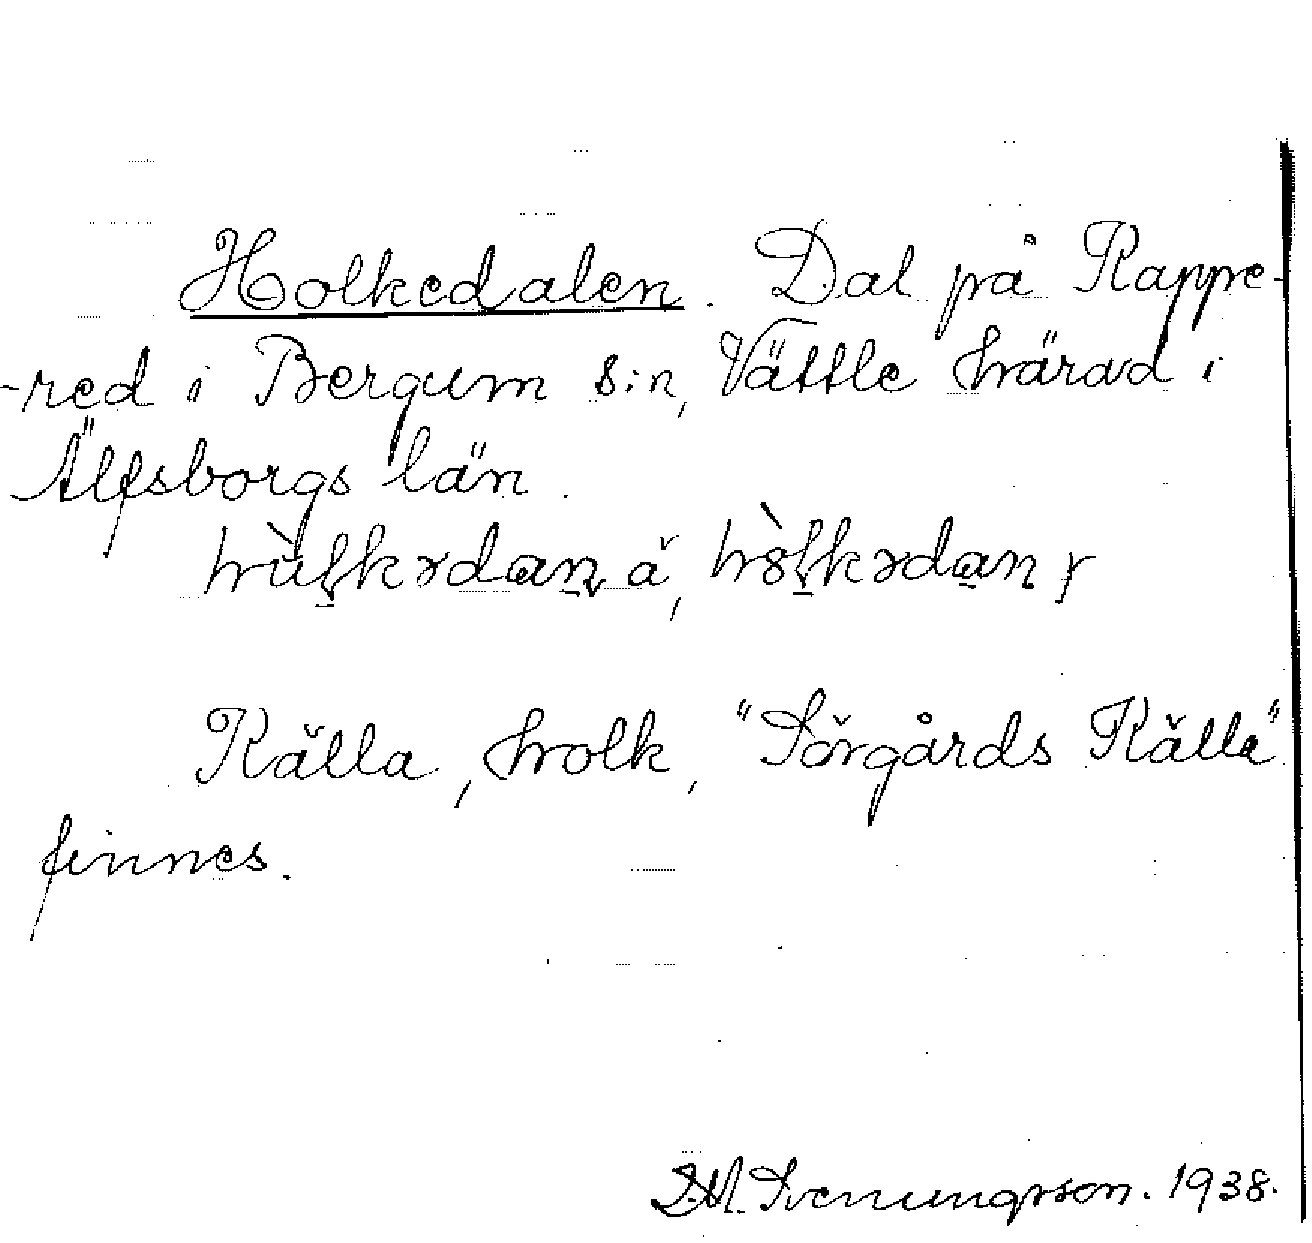 Holkedalen. Dal på Rappe-
-red i Bergum s:n, Vättle härad i
Älfsborgs län.
Källa, holk, "Sörgårds Källa"
finnes.
Svenungsson. 1938.